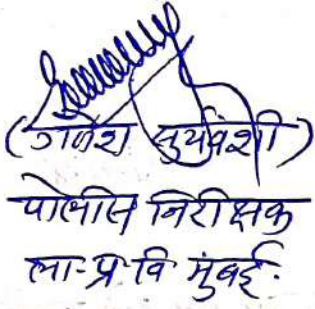 (गणेश सुर्यवंशी)
पोलीस निरीक्षक
ला-प्र-वि मुंबई.